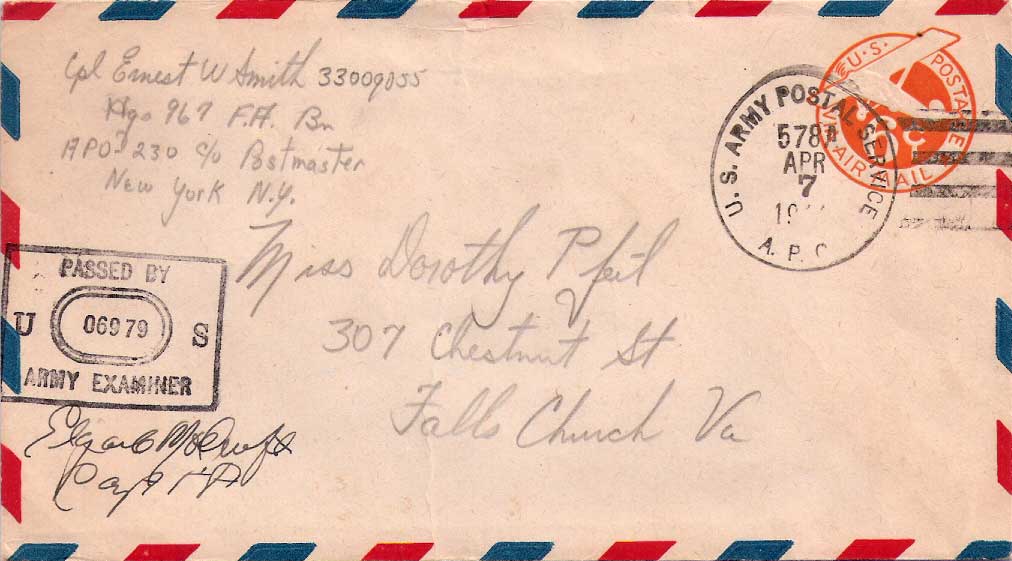 Cpl Ernest W Smith 33009055
Hqs 967 F.A. Bn
APO 230 c/o Postmaster
New York N.Y.
U.S. POSTAGE
VIA AIR MAIL
U.S. ARMY POSTAL SERVICE
578A
APR
7
A.P.O.
Miss Dorothy Pfeil
307 Chestnut St
Falls Church Va
PASSED BY
U 06979 S
ARMY EXAMINER
Capt FA